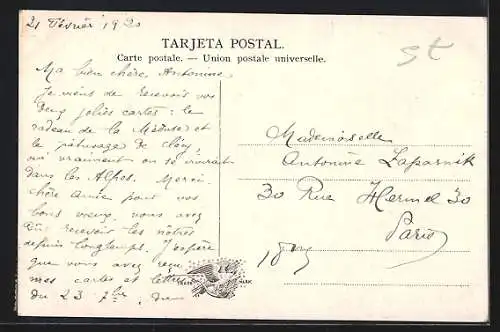 21 Février 1920
TARJETA POSTAL.
Carte postale. — Union postale universelle.
St
Ma bien chère Antonine
Je viens de recevoir vos
deux jolies cartes : le
radeau de la Méduse et
le pâturage de
où vraiment on se croirait
dans les Alpes. Merci
chère amie pour vos
bons vœux, vous avez
dû recevoir les nôtres
depuis longtemps. J'espère
que vous avez reçu
mes cartes et lettres
du 23 7bre, du
Mademoiselle
Antonine Laparnik
30 Rue Hermel 30
Paris
TRADE MARK